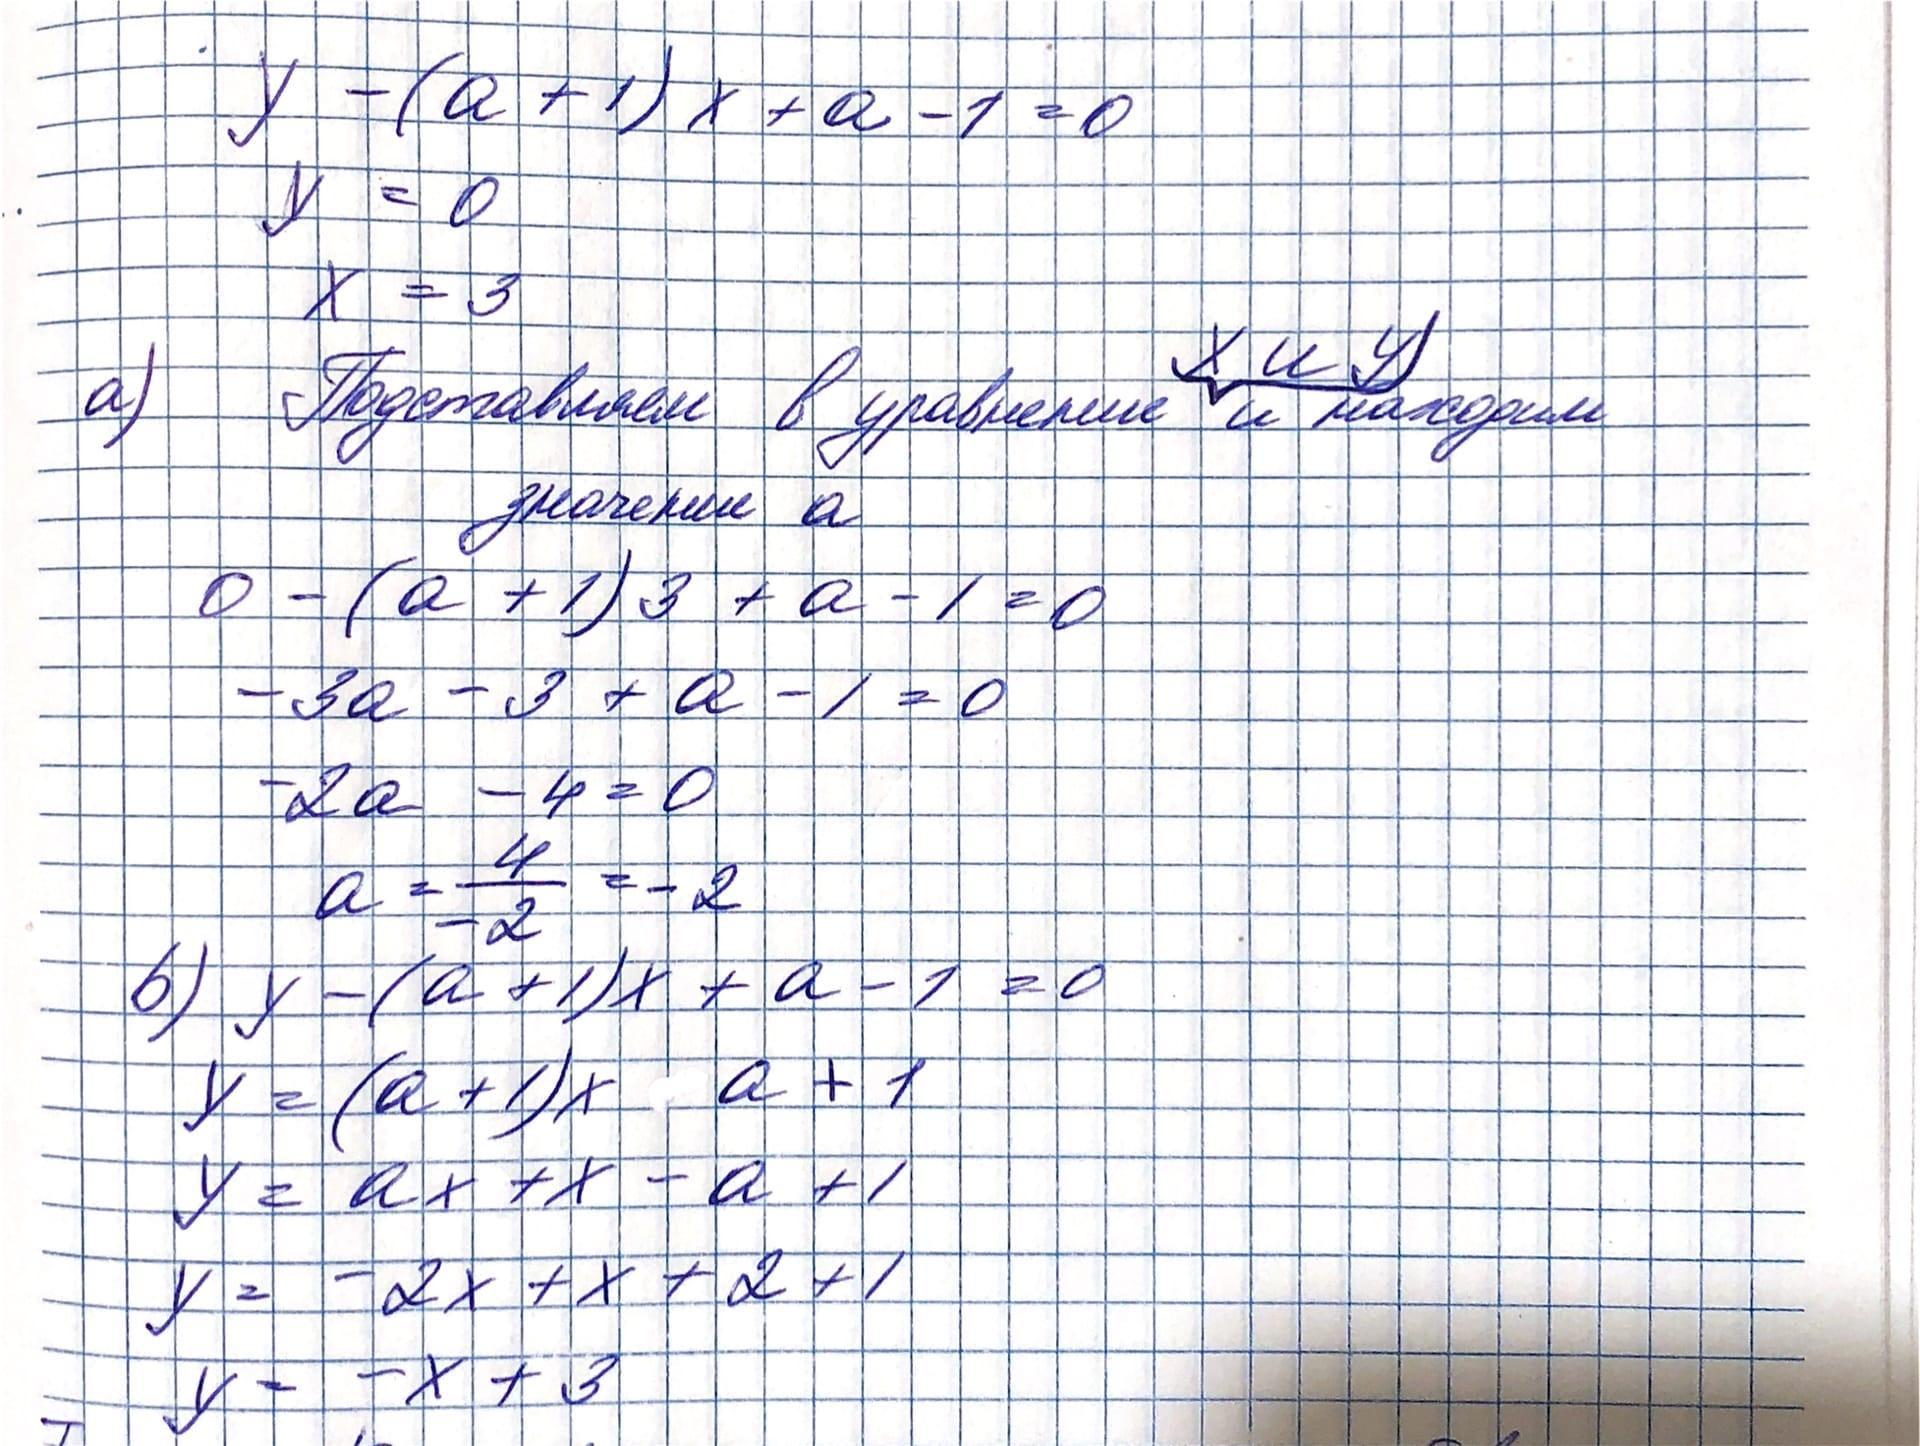 y - (a + 1) x + a - 1 = 0
y = 0
x = 3
x и y
а) Подставляем в уравнение и находим
значение a
0 - (a + 1) 3 + a - 1 = 0
- 3a - 3 + a - 1 = 0
-2a - 4 = 0
a = 4/-2 = -2
б) y - (a + 1)x + a - 1 = 0
y = (a + 1)x a + 1
y = ax + x - a + 1
y = -2x + x + 2 + 1
y = -x + 3